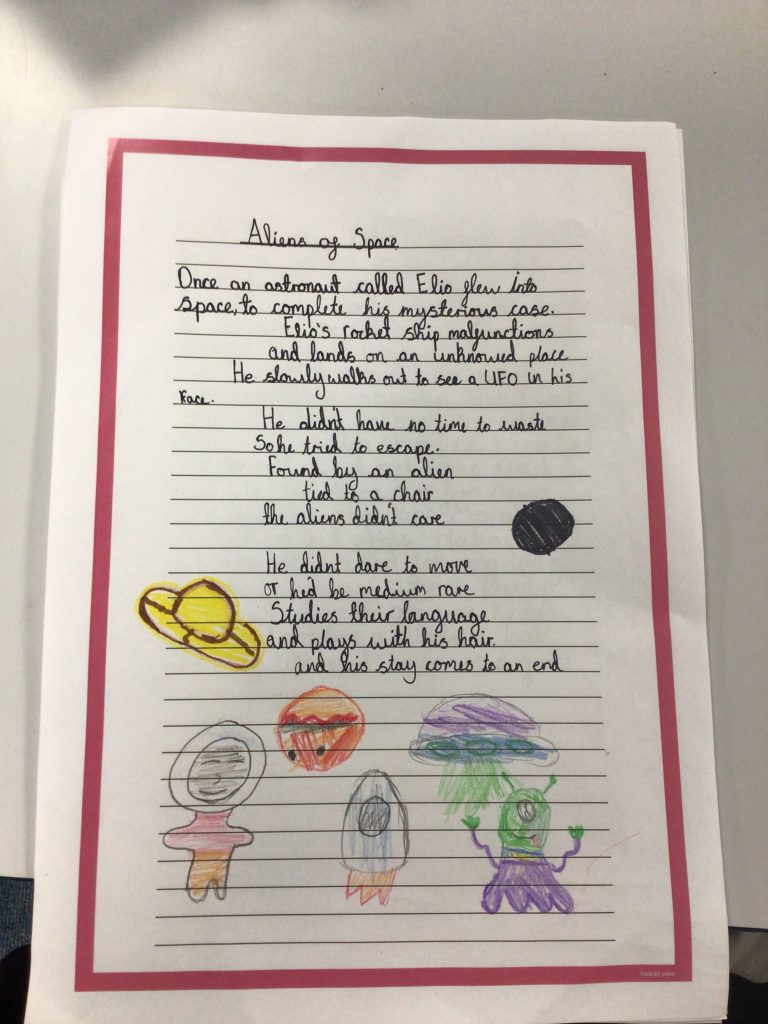 Aliens of Space
Once an astronaut called Elio flew into
space, to complete his mysterious case.
Elio's rocket ship malfunctions
and lands on an unknowed place
He slowly walks out to see a UFO in his
face.
He didn't have no time to waste
So he tried to escape.
Found by an alien
tied to a chair
the aliens didn't care
He didnt dare to move
or hed be medium rare
Studies their language
and plays with his hair.
and his stay comes to an end
twinkl.com